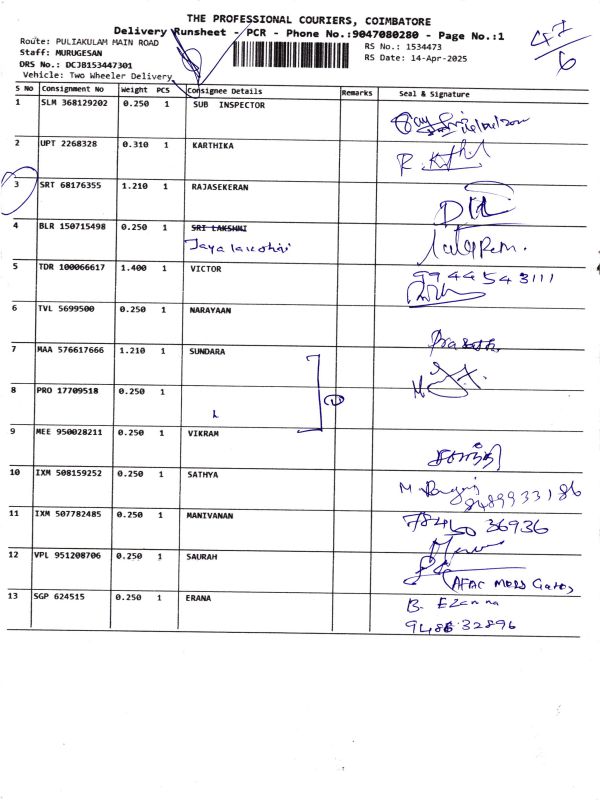 THE PROFESSIONAL COURIERS, COIMBATORE
Delivery Runsheet - PCR - Phone No.:9047080280 - Page No.:1
47/6
Route: PULIAKULAM MAIN ROAD
RS No.: 1534473
Staff: MURUGESAN
RS Date: 14-Apr-2025
DRS No.: DCJB153447301
Vehicle: Two Wheeler Delivery
S No Consignment No Weight PCS Consignee Details Remarks Seal & Signature
1 SLM 368129202 0.250 1 SUB INSPECTOR
2 UPT 2268328 0.310 1 KARTHIKA
3 SRT 68176355 1.210 1 RAJASEKERAN
4 BLR 150715498 0.250 1 SRI LAKSHMI
5 TDR 100066617 1.400 1 VICTOR 9944543111
6 TVL 5699500 0.250 1 NARAYAAN
7 MAA 576617666 1.210 1 SUNDARA
8 PRO 17709518 0.250 1
9 MEE 950028211 0.250 1 VIKRAM
10 IXM 508159252 0.250 1 SATHYA
8489933186
11 IXM 507782485 0.250 1 MANIVANAN 78460 36936
12 VPL 951208706 0.250 1 SAURAH
13 SGP 624515 0.250 1 ERANA B. Ezanna
948632896